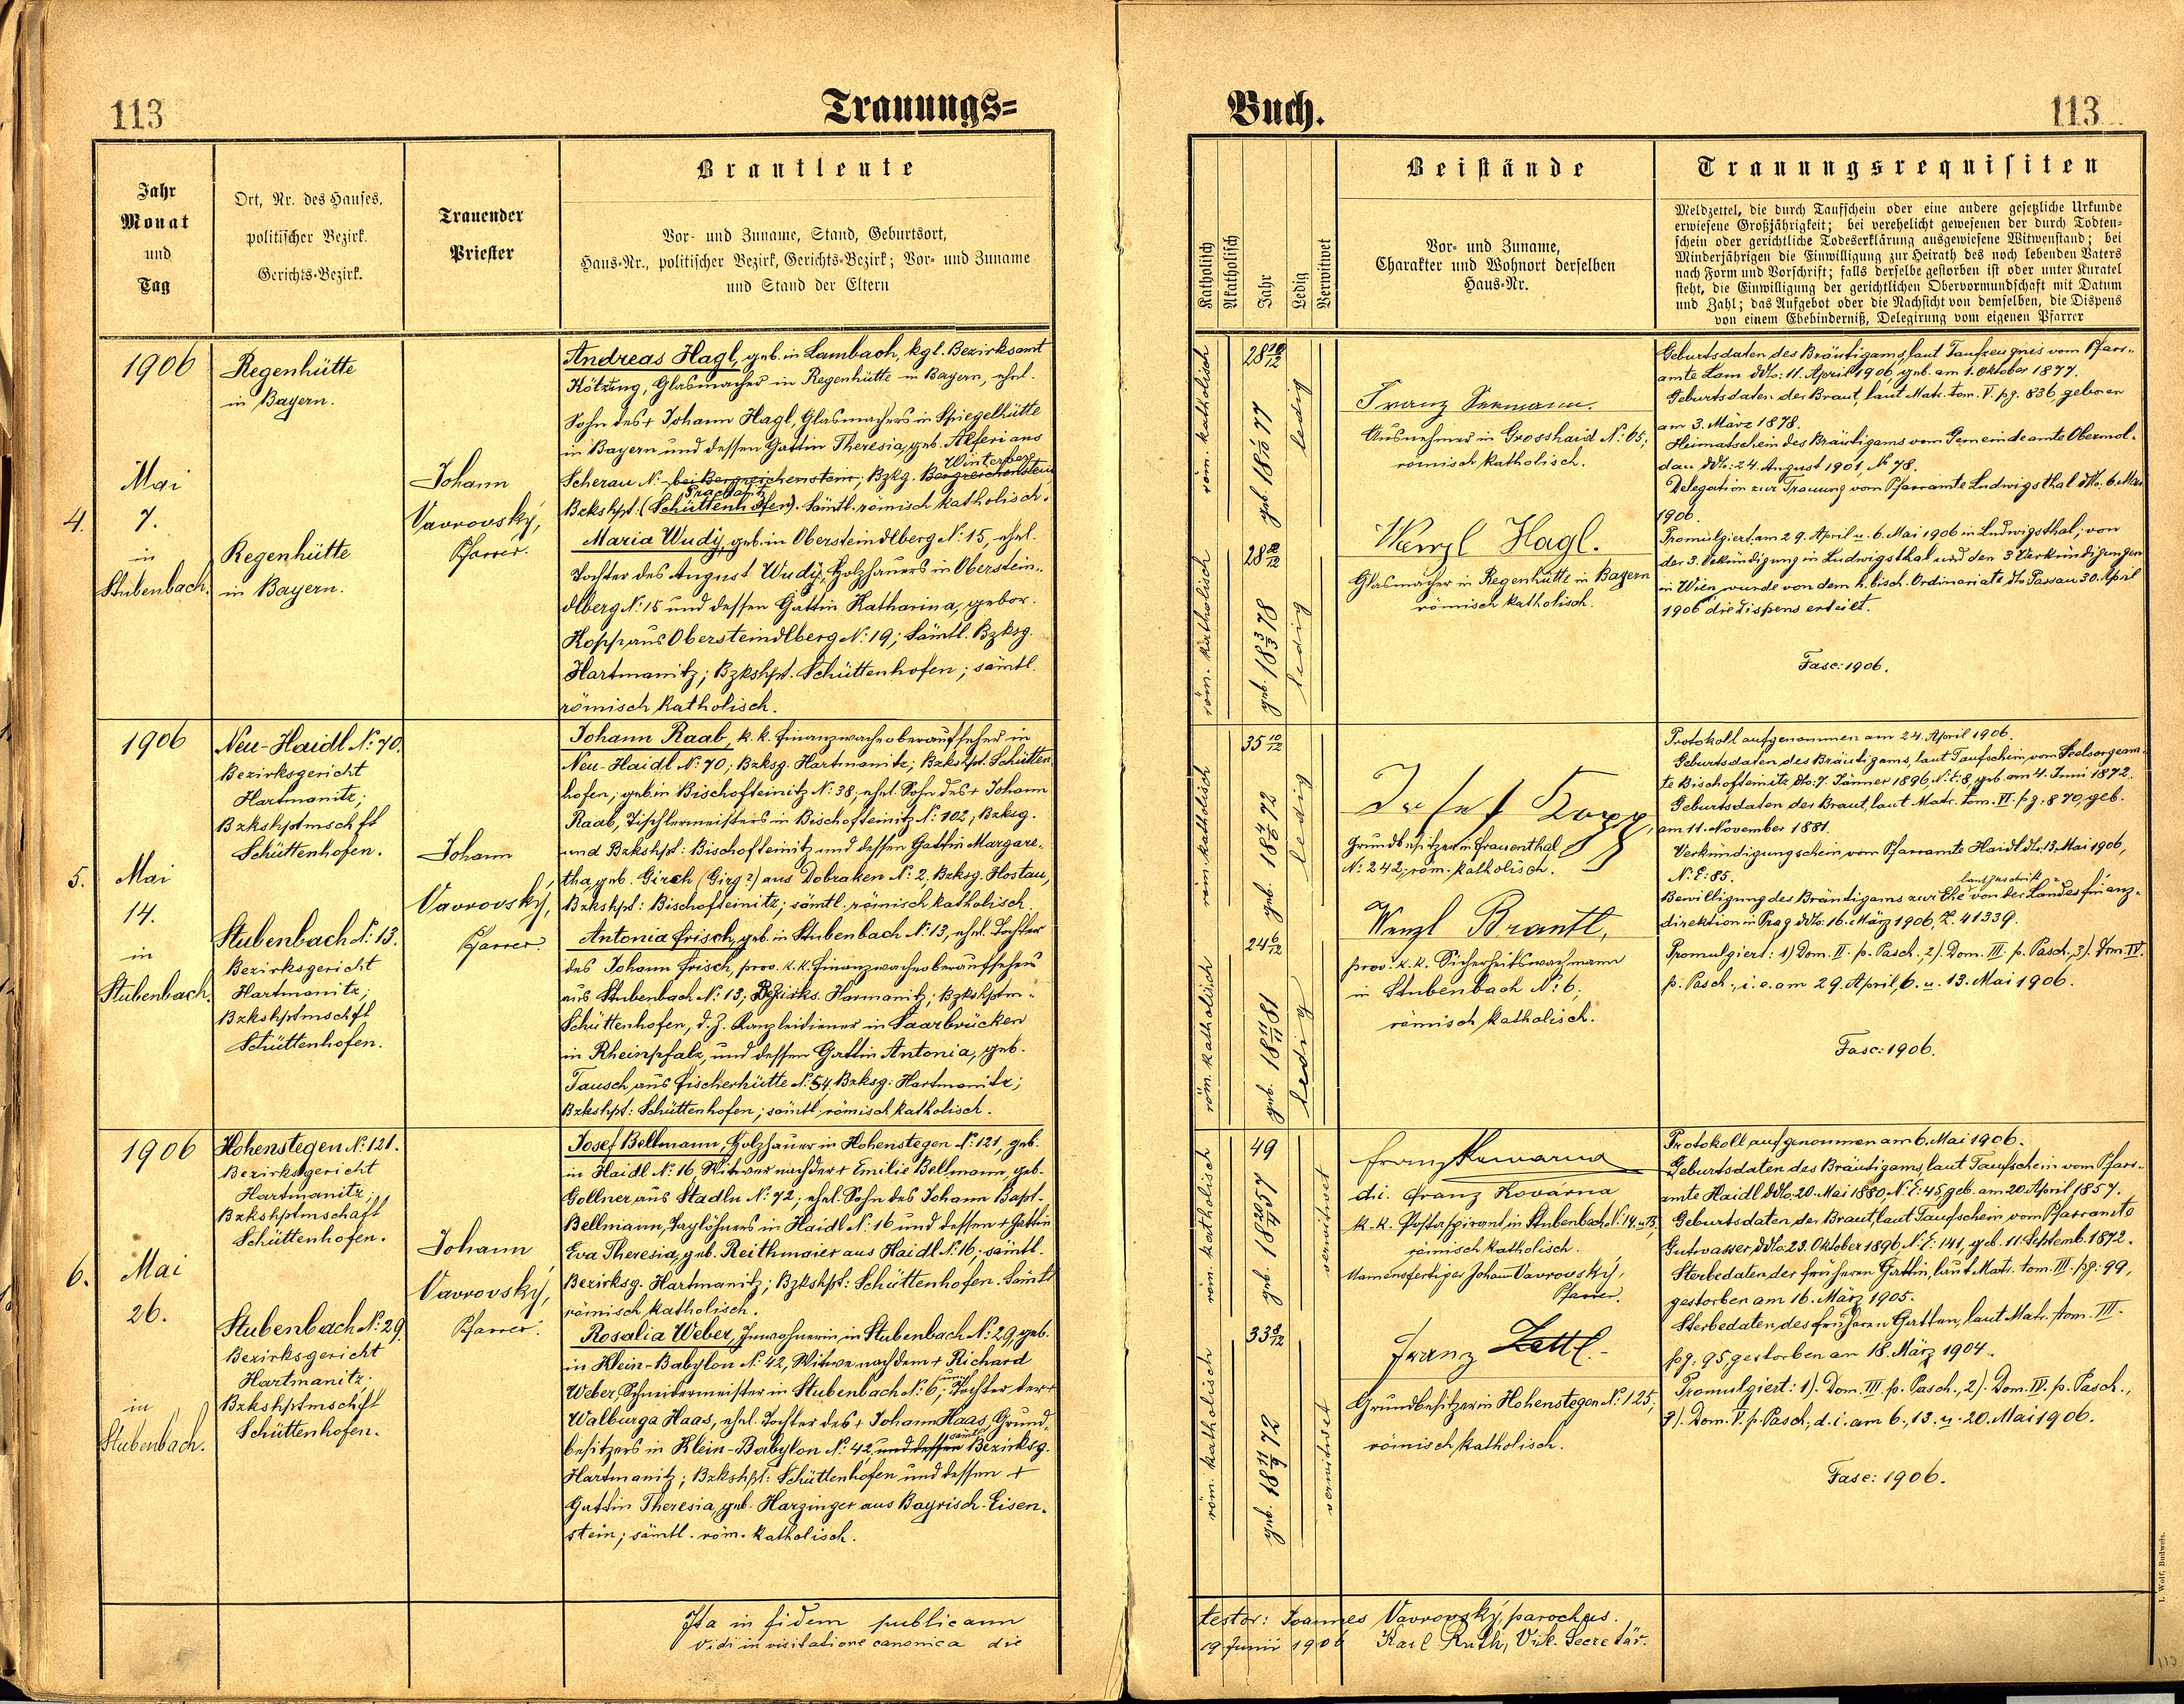 113
Trauungs=
Jahr
Monat
und
Tag
Ort, Nr. des Hauses,
politischer Bezirk.
Gerichts-Bezirk.
Trauender
Priester
Brautleute
Vor- und Zuname, Stand, Geburtsort,
Haus-Nr., politischer Bezirk, Gerichts-Bezirk; Vor- und Zuname
und Stand der Eltern
4.
1906
Mai
7.
in
Stubenbach.
Regenhütte
in Bayern.
Regenhütte
in Bayern.
Johann
Vavrovský,
Pfarrer.
Andreas Hagl, geb. in Lambach, kgl. Bezirksamt
Kötzting, Glasmacher in Regenhütte in Bayern, ehel.
Sohn des + Johann Hagl, Glasmachers in Spiegelhütte
in Bayern und dessen Gattin Theresia, geb. Alferi aus
Winterberg
Scherau N:- bei Bergreichenstein; Bzkg. Bergreichenstein
Prachatitz
Bzkshpt. (Schüttenhofen). Sämtl. römisch katholisch.
Maria Wudy, geb. in Obersteindlberg N: 15, ehel.
Tochter des August Wudy, Holzhauers in Oberstein-
dlberg N: 15 und dessen Gattin Katharina, gebor.
Kopp aus Obersteindlberg N: 19; Sämtl. Bzksg.
Hartmanitz; Bzkshpt. Schüttenhofen; sämtl.
römisch katholisch.
5.
1906
Mai
14.
in
Stubenbach.
Neu-Haidl N: 70.
Bezirksgericht
Hartmanitz;
Bzkshptmschft
Schüttenhofen.
Stubenbach N: 13.
Bezirksgericht
Hartmanitz;
Bzkshptmschft
Schüttenhofen.
Johann
Vavrovský,
Pfarrer.
Johann Raab, k. k. Finanzwacheoberaufseher in
Neu-Haidl N: 70; Bzksg. Hartmanitz; Bzkshpt. Schütten-
hofen; geb. in Bischofteinitz N: 38, ehel. Sohn des + Johann
Raab, Tischlermeisters in Bischofteinitz N: 102; Bzksg.
und Bzkshpt: Bischofteinitz und dessen Gattin Margare-
tha, geb. Girch (Girg?) aus Dobraken N: 2, Bzksg. Hostau,
Bzkshpt: Bischofteinitz; sämtl. römisch katholisch.
Antonia Frisch, geb. in Stubenbach N: 13, ehel. Tochter
des Johann Frisch, prov. k. k. Finanzwacheoberaufsehers
aus Stubenbach N: 13; Bezirks. Harmanitz; Bzkshptm-
Schüttenhofen, d. Z. Kanzleidiener in Saarbrücken
in Rheinpfalz, und dessen Gattin Antonia, geb.
Tausch, aus Fischerhütte N: 54, Bzksg: Hartmanitz;
Bzkshpt: Schüttenhofen; sämtl. römisch katholisch.
6.
1906
Mai
26.
in
Stubenbach.
Hohenstegen N: 121.
Bezirksgericht
Hartmanitz;
Bzkshptmschaft
Schüttenhofen.
Stubenbach N: 29
Bezirksgericht
Hartmanitz.
Bzkshptmschft
Schüttenhofen.
Johann
Vavrovský,
Pfarrer.
Josef Bellmann, Holzhauer in Hohenstegen N: 121, geb.
in Haidl N: 16, Witwer nach der + Emilie Bellmann, geb.
Gollner, aus Stadln N: 72, ehel. Sohn des Johann Bapt.
Bellmann, Taglöhners in Haidl N: 16 und dessen + Gattin
Eva Theresia, geb. Reithmaier aus Haidl N: 16; sämtl.
Bezirksg. Hartmanitz; Bzkshpt: Schüttenhofen. Sämtl.
römisch katholisch.
Rosalia Weber, Inwohnerin in Stubenbach N: 29, geb.
in Klein-Babylon N: 42, Witwe nach dem + Richard
Weber, Schneidermeister in Stubenbach N: 6; Tochter der +
Walburga Haas, ehel. Tochter des + Johann Haas, Grund-
sämtl.
besitzers in Klein-Babylon N: 42, und dessen Bezirksg.
Hartmanitz; Bzkshpt: Schüttenhofen und dessen +
Gattin Theresia, geb. Harzinger aus Bayrisch-Eisen-
stein; sämtl. röm. katholisch.
Ita in fidem publicam
Vidi in visitatione canonica die
Buch.
113
Katholisch
Akatholisch
Jahr
Ledig
Verwitwet
Beistände
Vor- und Zuname,
Charakter und Wohnort derselben
Haus-Nr.
Trauungsrequisiten
Meldzettel, die durch Taufschein oder eine andere gesetzliche Urkunde
erwiesene Großjährigkeit; bei verehelicht gewesenen der durch Todten-
schein oder gerichtliche Todeserklärung ausgewiesene Witwenstand; bei
Minderjährigen die Einwilligung zur Heirath des noch lebenden Vaters
nach Form und Vorschrift; falls derselbe gestorben ist oder unter Kuratel
steht, die Einwilligung der gerichtlichen Obervormundschaft mit Datum
und Zahl; das Aufgebot oder die Nachsicht von demselben, die Dispens
von einem Ehebinderniß, Delegirung vom eigenen Pfarrer
röm. katholisch
geb. 18 1/10 77
ledig
röm. katholisch
28 2/12
geb. 18 3/3 78
ledig
Franz
Ausnehmer in Grosshaid N: 65;
römisch katholisch.
Wenzl Hagl.
Glasmacher in Regenhütte in Bayern
römisch katholisch.
Geburtsdaten des Bräutigams, laut Taufzeugnis vom Pfarr-
amte Lam ddto: 11. April 1906, geb. am 1. Oktober 1877.
Geburtsdaten der Braut, laut Matr. tom. V. pg. 836, geboren
am 3. März 1878.
Heimatschein des Bräutigams vom Gemeindeamte Obermol-
dau ddto: 24. August 1901, No 78.
Delegation zur Trauung vom Pfarramte Ludwigsthal ddto. 6. Mai
1906.
Promulgiert am 29. April u. 6. Mai 1906 in Ludwigsthal; von
der 3. Vekündigung in Ludwigsthal und den 3 Verkündigungen
in Wien, wurde von dem h. bisch. Ordinariate dto Passau 30. April
1906 die Dispens erteilt.
Fasc: 1906.
röm. katholisch
35 10/12
geb. 18 4/6 72
ledig
röm. katholisch
24 6/12
geb. 18 11/11 81
ledig
Josef Kopp,
Grundbesitzer in Frauenthal
N: 242; röm. katholisch.
Wenzl Brantl,
prov. k. k. Sicherheitswachmann
in Stubenbach N: 6;
römisch katholisch.
Protokoll aufgenommen am 24. April 1906.
Geburtsdaten des Bräutigams, laut Taufschein vom Seelsorgeam-
te Bischofteinitz dto: 7. Jänner 1896, N: E: 8, geb. am 4. Juni 1872.
Geburtsdaten der Braut, laut Matr. tom. VI. pg: 870, geb.
am 11. November 1881.
Verkündigungschein vom Pfarramte Haidl dto. 13. Mai 1906,
N: E: 85.
laut Zuschrift
Bewilligung des Bräutigams zur Ehe von der Landesfinanz-
direktion in Prag ddto: 16. März 1906, Z. 41339.
Promulgiert: 1) Dom. II. p. Pasch., 2). Dom. III. p. Pasch., 3). Dom. IV.
p. Pasch., i. e. am 29. April, 6. u. 13. Mai 1906.
Fasc: 1906.
röm. katholisch
49
geb. 18 20/4 57
verwitwet
röm. katholisch
33 8/12
geb. 18 11/9 72
verwitwet
Franz Kowarna
d. i. Franz Kovárna
k. k. Postaspirant in Stubenbach N: 14
römisch katholisch.
Namensfertiger Johann Vavrovský,
Pfarrer.
Franz Zettl.
Grundbesitzer in Hohenstegen N: 125;
römisch katholisch.
Protokoll aufgenommen am 6. Mai 1906.
Geburtsdaten des Bräutigams, laut Taufschein vom Pfarr-
amte Haidl ddto. 20. Mai 1880, N: E: 45, geb. am 20. April 1857.
Geburtsdaten der Braut, laut Taufschein vom Pfarramte
Gutwasser, ddto: 23. Oktober 1896, N: E: 141, geb. 11. Septemb. 1872.
Sterbedaten der früheren Gattin, laut Matr. tom. III. pg: 99,
gestorben am 16. März 1905.
Sterbedaten des früheren Gatten, laut Matr. tom. III.
pg: 95, gestorben am 18. März 1904.
Promulgiert: 1). Dom. III. p. Pasch., 2). Dom. IV. p. Pasch.,
3). Dom. V. p. Pasch; d. i. am 6., 13. u. 20. Mai 1906.
Fasc: 1906.
testor: Joannes Vavrovský, parochus.
19 Junii 1906 Karl Ruth, Vik. Secretär.
I. Wolf, Budweis.
113